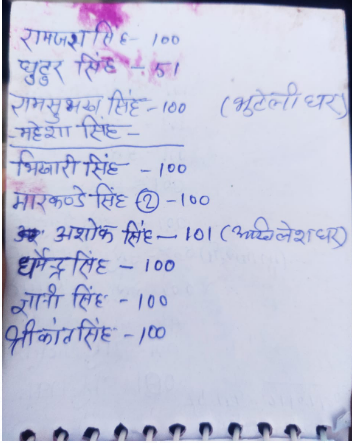 रामजश सिंह - 100
घुटुर सिंह - 51
रामसुभग सिंह - 100 (भुटेली घर)
महेश सिंह -
भिखारी सिंह - 100
मारकण्डे सिंह ② - 100
अशोक सिंह - 101 (अखिलेश घर)
धर्मेन्द्र सिंह - 100
ज्ञानी सिंह - 100
श्रीकांत सिंह - 100